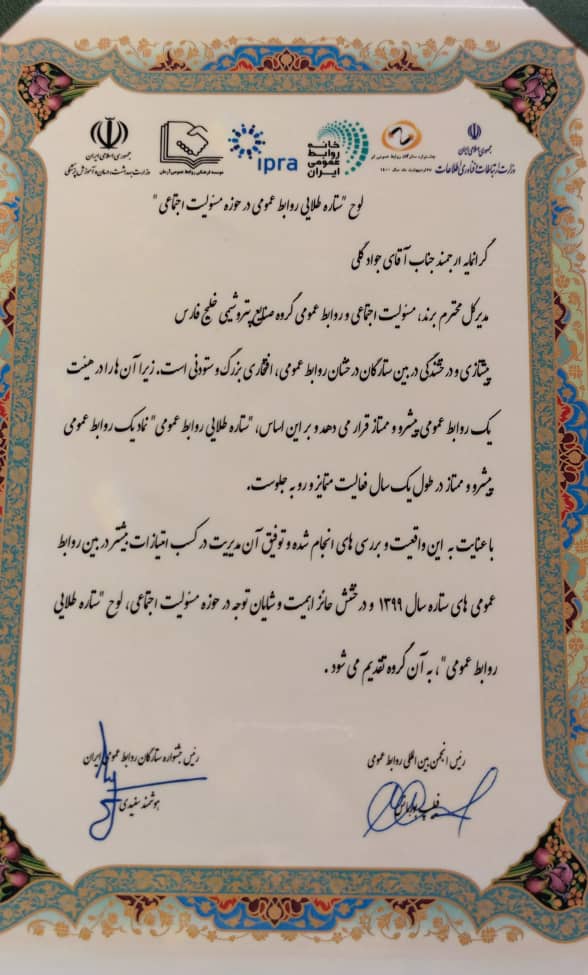 جمهوری اسلامی ایران
وزارت ارتباطات و فناوری اطلاعات
خانه
روابط
عمومی
ایران
ipra
موسسه فرهنگی روابط عمومی آرمان
جمهوری اسلامی ایران
وزارت بهداشت، درمان و آموزش پزشکی
لوح "ستاره طلایی روابط عمومی در حوزه مسئولیت اجتماعی"
گرانمایه ارجمند جناب آقای جواد گلی
مدیرکل محترم برند، مسئولیت اجتماعی و روابط عمومی گروه صنایع پتروشیمی خلیج فارس
پیشتازی و درخشندگی در بین ستارگان درخشان روابط عمومی، افتخاری بزرگ و ستودنی است. زیرا آن ها را در هیئت
یک روابط عمومی پیشرو و ممتاز قرار می دهد و بر این اساس، "ستاره طلایی روابط عمومی" نماد یک روابط عمومی
پیشرو و ممتاز در طول یک سال فعالیت متمایز و رو به جلوست.
با عنایت به این واقعیت و بررسی های انجام شده و توفیق آن مدیریت در کسب امتیازات بیشتر در بین روابط
عمومی های ستاره سال ۱۳۹۹ و درخشش حائز اهمیت و شایان توجه در حوزه مسئولیت اجتماعی، لوح "ستاره طلایی
روابط عمومی"، به آن گروه تقدیم می شود.
رئیس انجمن بین المللی روابط عمومی
فیلیپ بورمانس
رئیس جشنواره ستارگان روابط عمومی ایران
هوشمند سفیدی